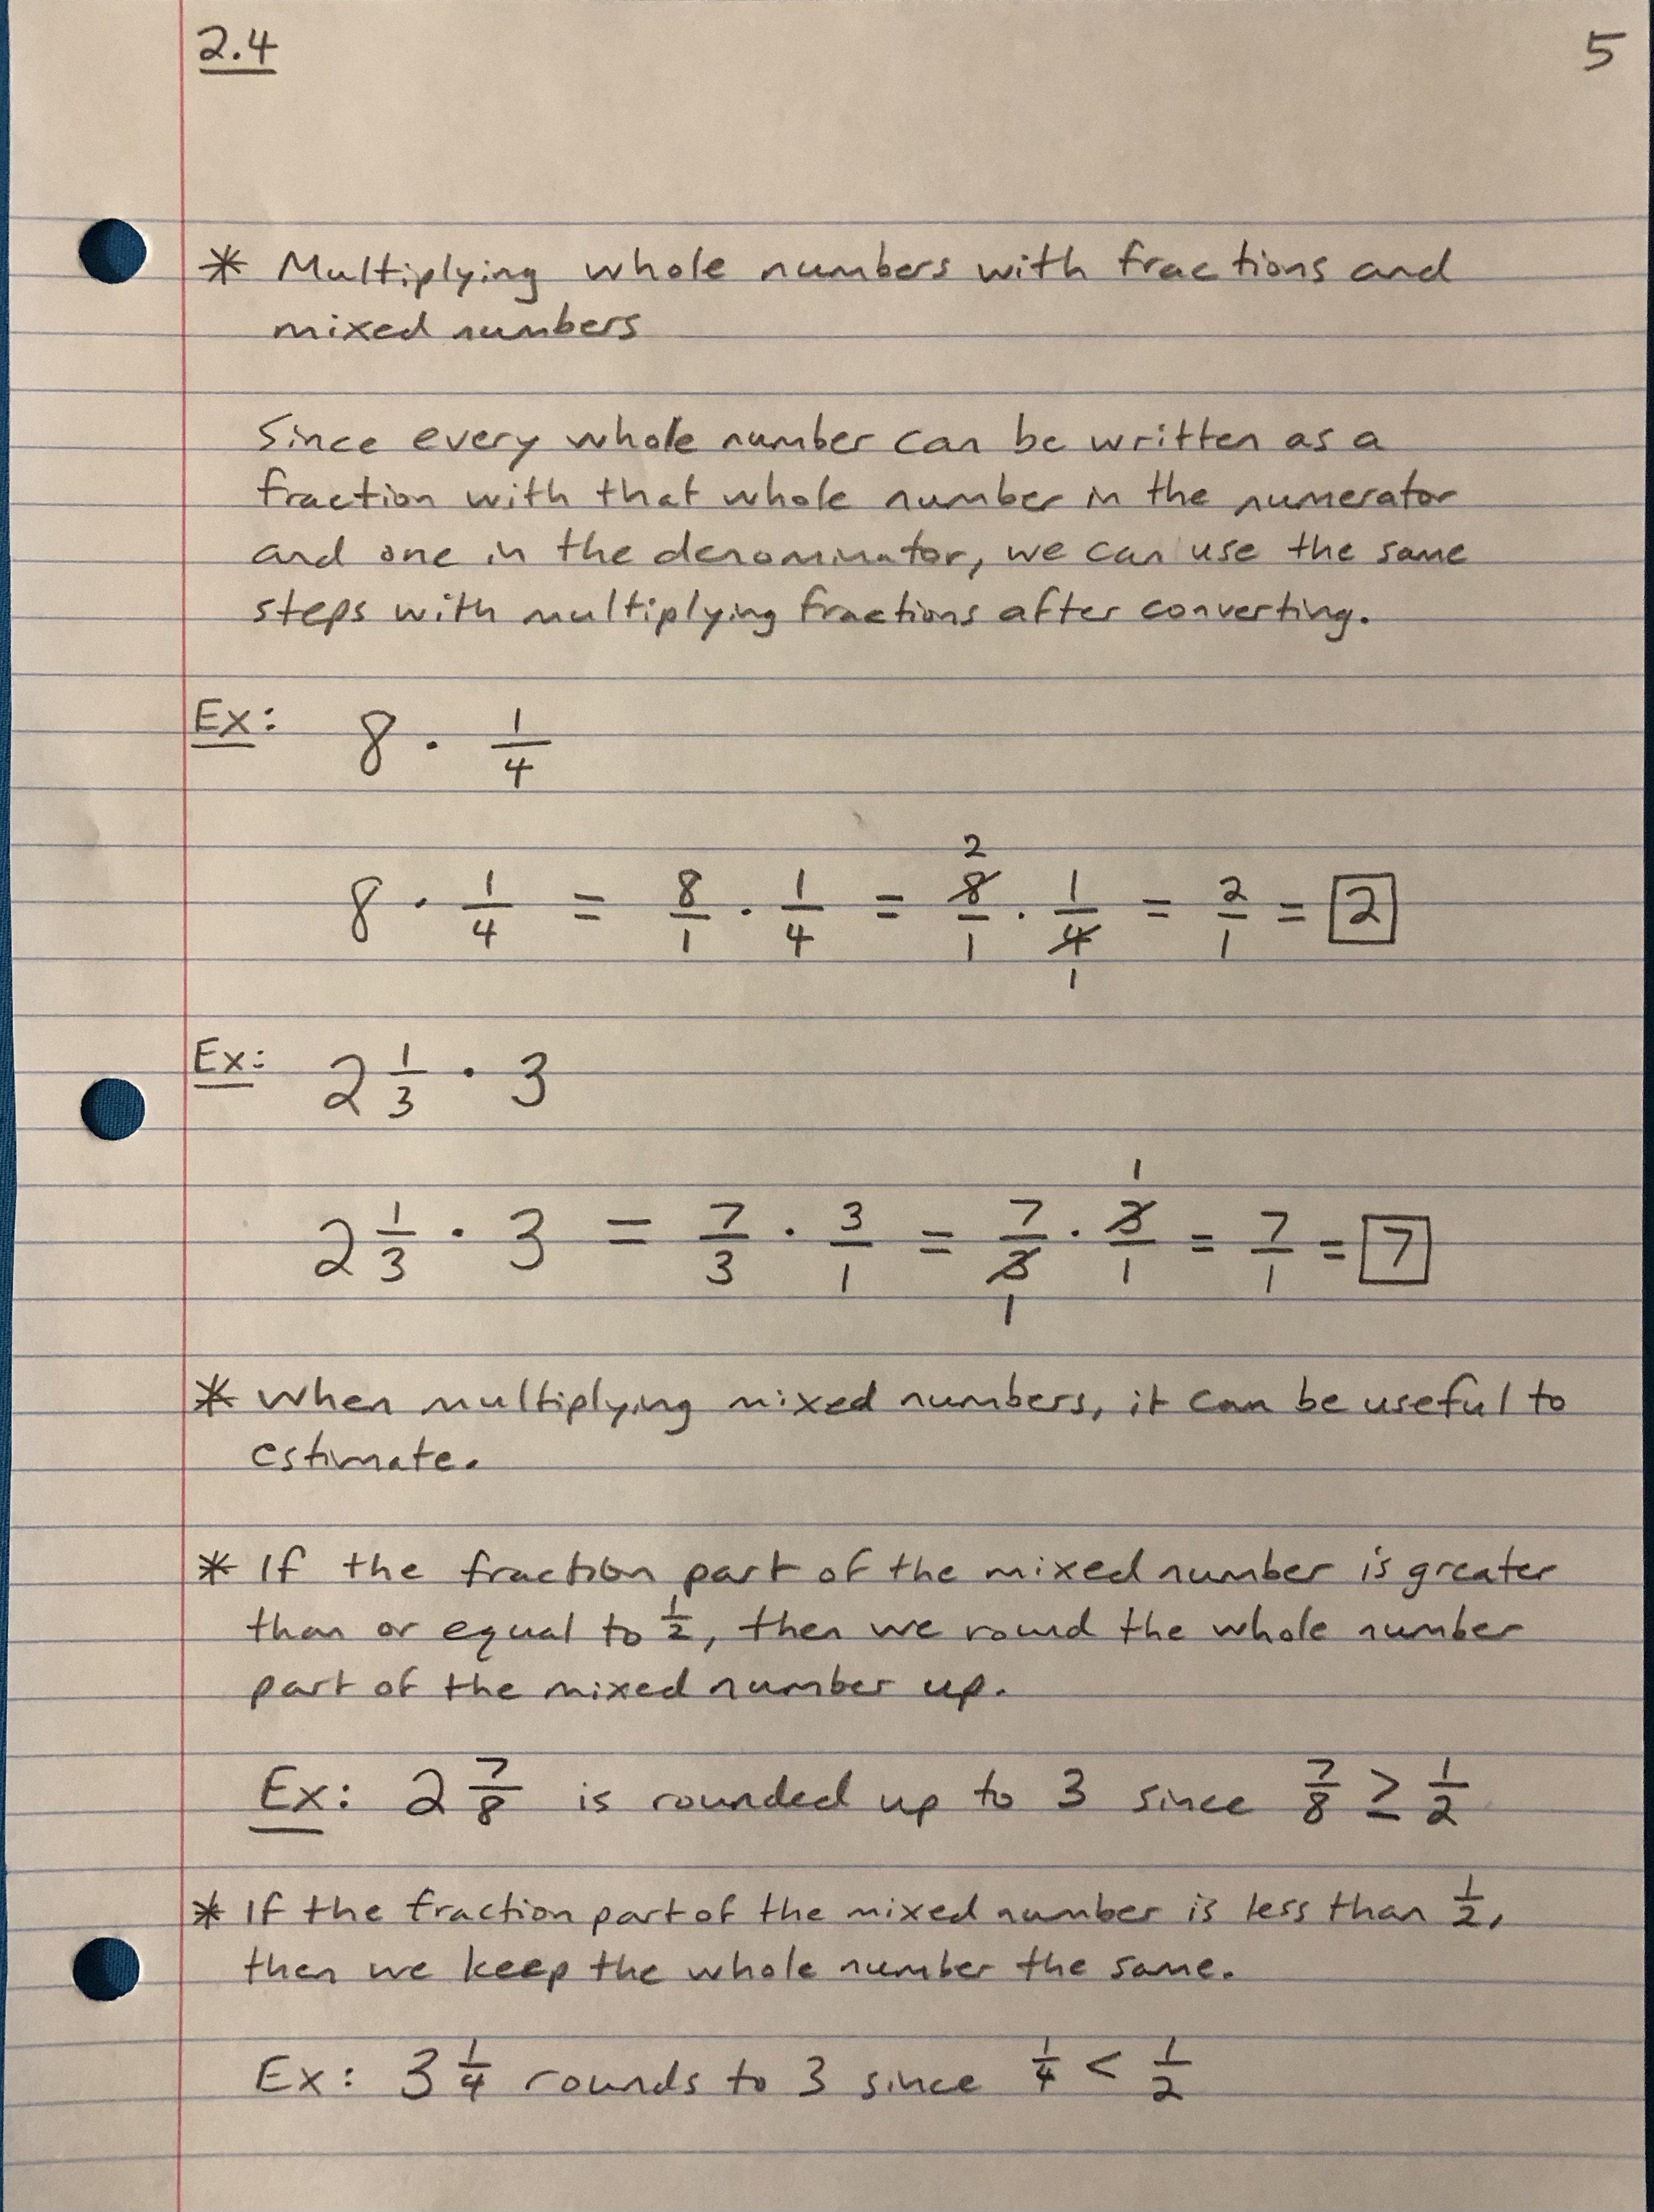 2.4 5
* Multiplying whole numbers with fractions and
mixed numbers
Since every whole number can be written as a
fraction with that whole number in the numerator
and one in the denominator, we can use the same
steps with multiplying fractions after converting.
Ex: 8 · 1/4
8 · 1/4 = 8/1 · 1/4 = 8̸/1 (2) · 1/4̸ (1) = 2/1 = 2
Ex: 2 1/3 · 3
2 1/3 · 3 = 7/3 · 3/1 = 7/3̸ (1) · 3̸/1 (1) = 7/1 = 7
* When multiplying mixed numbers, it can be useful to
estimate.
* If the fraction part of the mixed number is greater
than or equal to 1/2, then we round the whole number
part of the mixed number up.
Ex: 2 7/8 is rounded up to 3 since 7/8 ≥ 1/2
* If the fraction part of the mixed number is less than 1/2,
then we keep the whole number the same.
Ex: 3 1/4 rounds to 3 since 1/4 < 1/2